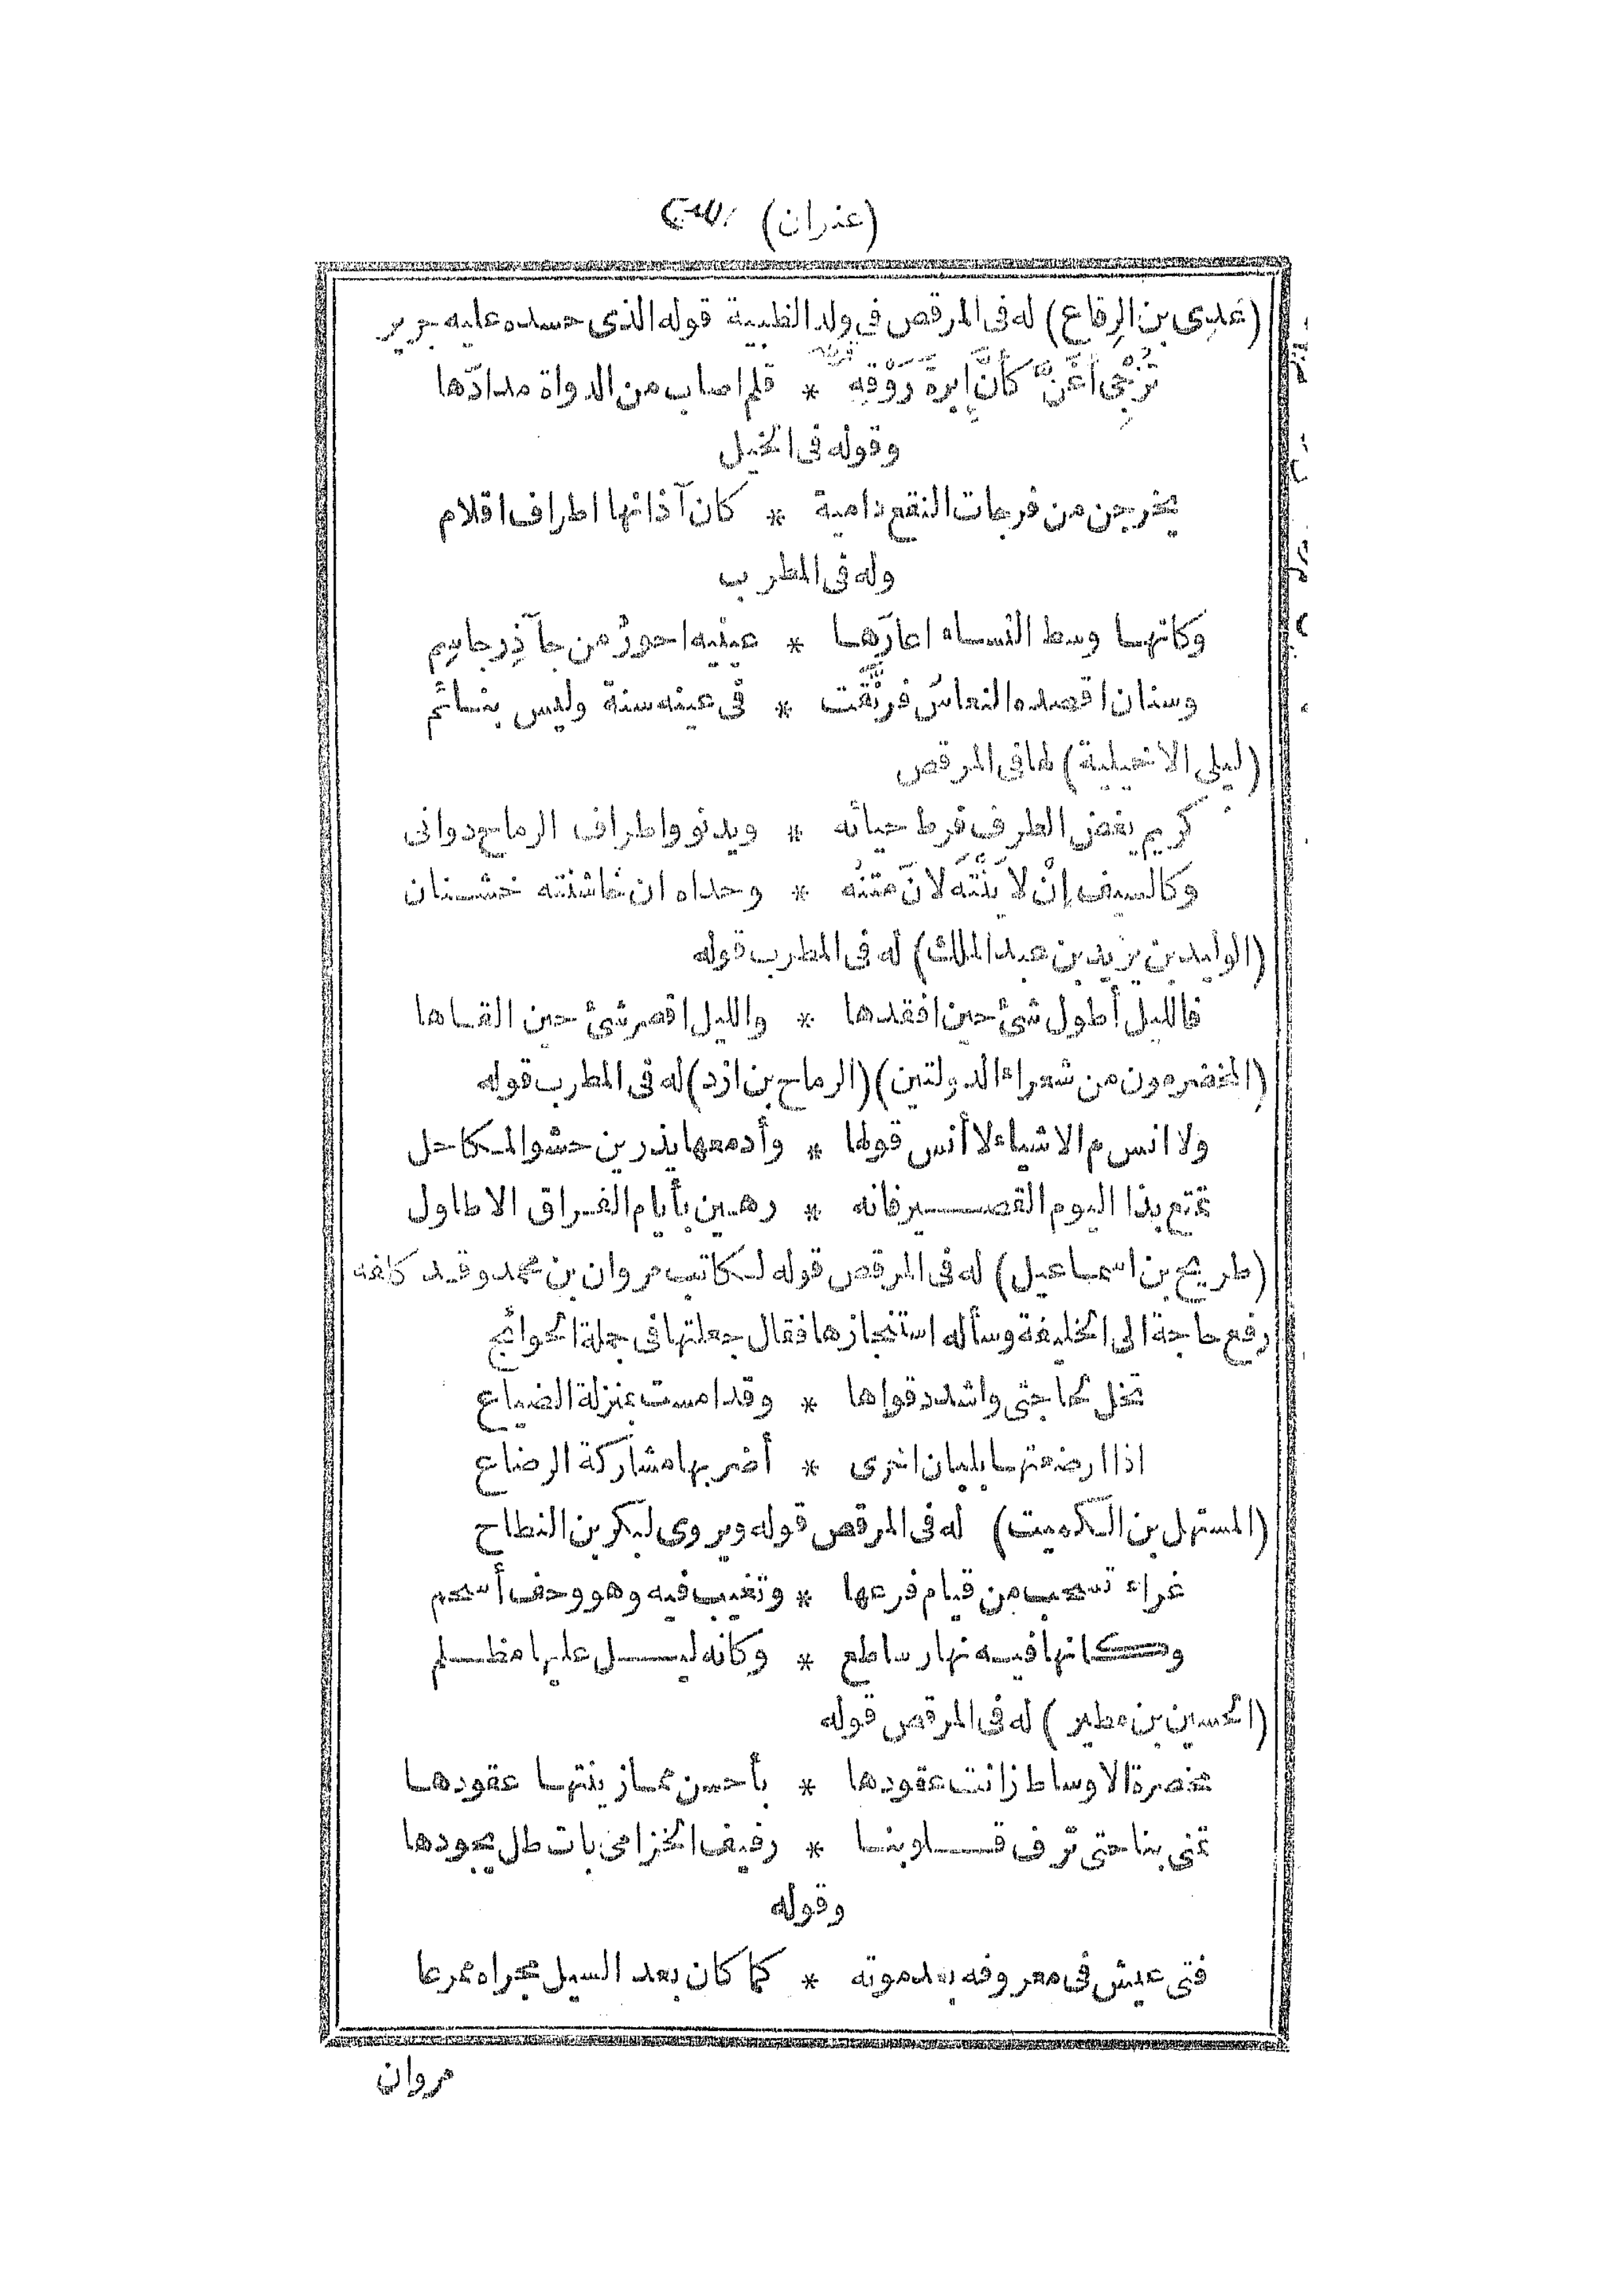 (عنران)
(عَدِى بن الرِقاع) له فى المرقص فى ولد الظبية قوله الذى حسده عليه جرير
تُزْجِى أغَنَّ كأنَّ إبرةَ رَوْقِهِ * قلم اصاب من الدواة مدادَها
وقوله فى الخيل
يخرجن من فرجات النقع دامية * كان آذانها اطراف اقلام
وله فى المطرب
وكانها وسط النساء اعارَها * عينيه احورُ من جآذِر جاسِم
وسنان اقصده النعاسُ فرنَّقت * فى عينه سنة وليس بنائم
(ليلى الاخيلية) لها فى المرقص
كريم يغض الطرف فرط حيائه * ويدنو واطراف الرماح دوانى
وكالسيف إنْ لايَنْتَه لانَ متنُه * وحداه ان خاشنته خشنان
(الوليد بن يزيد بن عبد الملك) له فى المطرب قوله
فالليل أطول شئ حين افقدها * والليل اقصر شئ حين القاها
(المخضرمون من شعراء الدولتين) (الرماح بن ازد) له فى المطرب قوله
ولا انس م الاشياء لا أنس قولها * وأدمعها يذرين حشو المكاحل
تمتع بذا اليوم القصير فانه * رهين بأيام الفراق الاطاول
(طريح بن اسماعيل) له فى المرقص قوله لكاتب مروان بن محمد وقيد كلفه
رفع حاجة الى الخليفة وسأله استنجازها فقال جعلتها فى جملة الحوائج
تخل لحاجتى واشدد قواها * وقد امست بمنزلة الضياع
اذا ارضعتها بلبان اخرى * أضر بها مشاركة الرضاع
(المستهل بن الكميت) له فى المرقص قوله ويروى لبكر بن النطاح
غراء تسحب من قيام فرعها * وتغيب فيه وهو وحف أسحم
وكانها فيه نهار ساطع * وكانه ليل عليها مظلم
(الحسين بن مطير) له فى المرقص قوله
مخصرة الاوساط زانت عقودها * بأحسن مما زينتها عقودها
تمنى بنا حتى ترف قلوبنا * رفيف الخزامى بات طل يجودها
وقوله
فتى عيش فى معروفه بعد موته * كما كان بعد السيل مجراه ممرعا
مروان